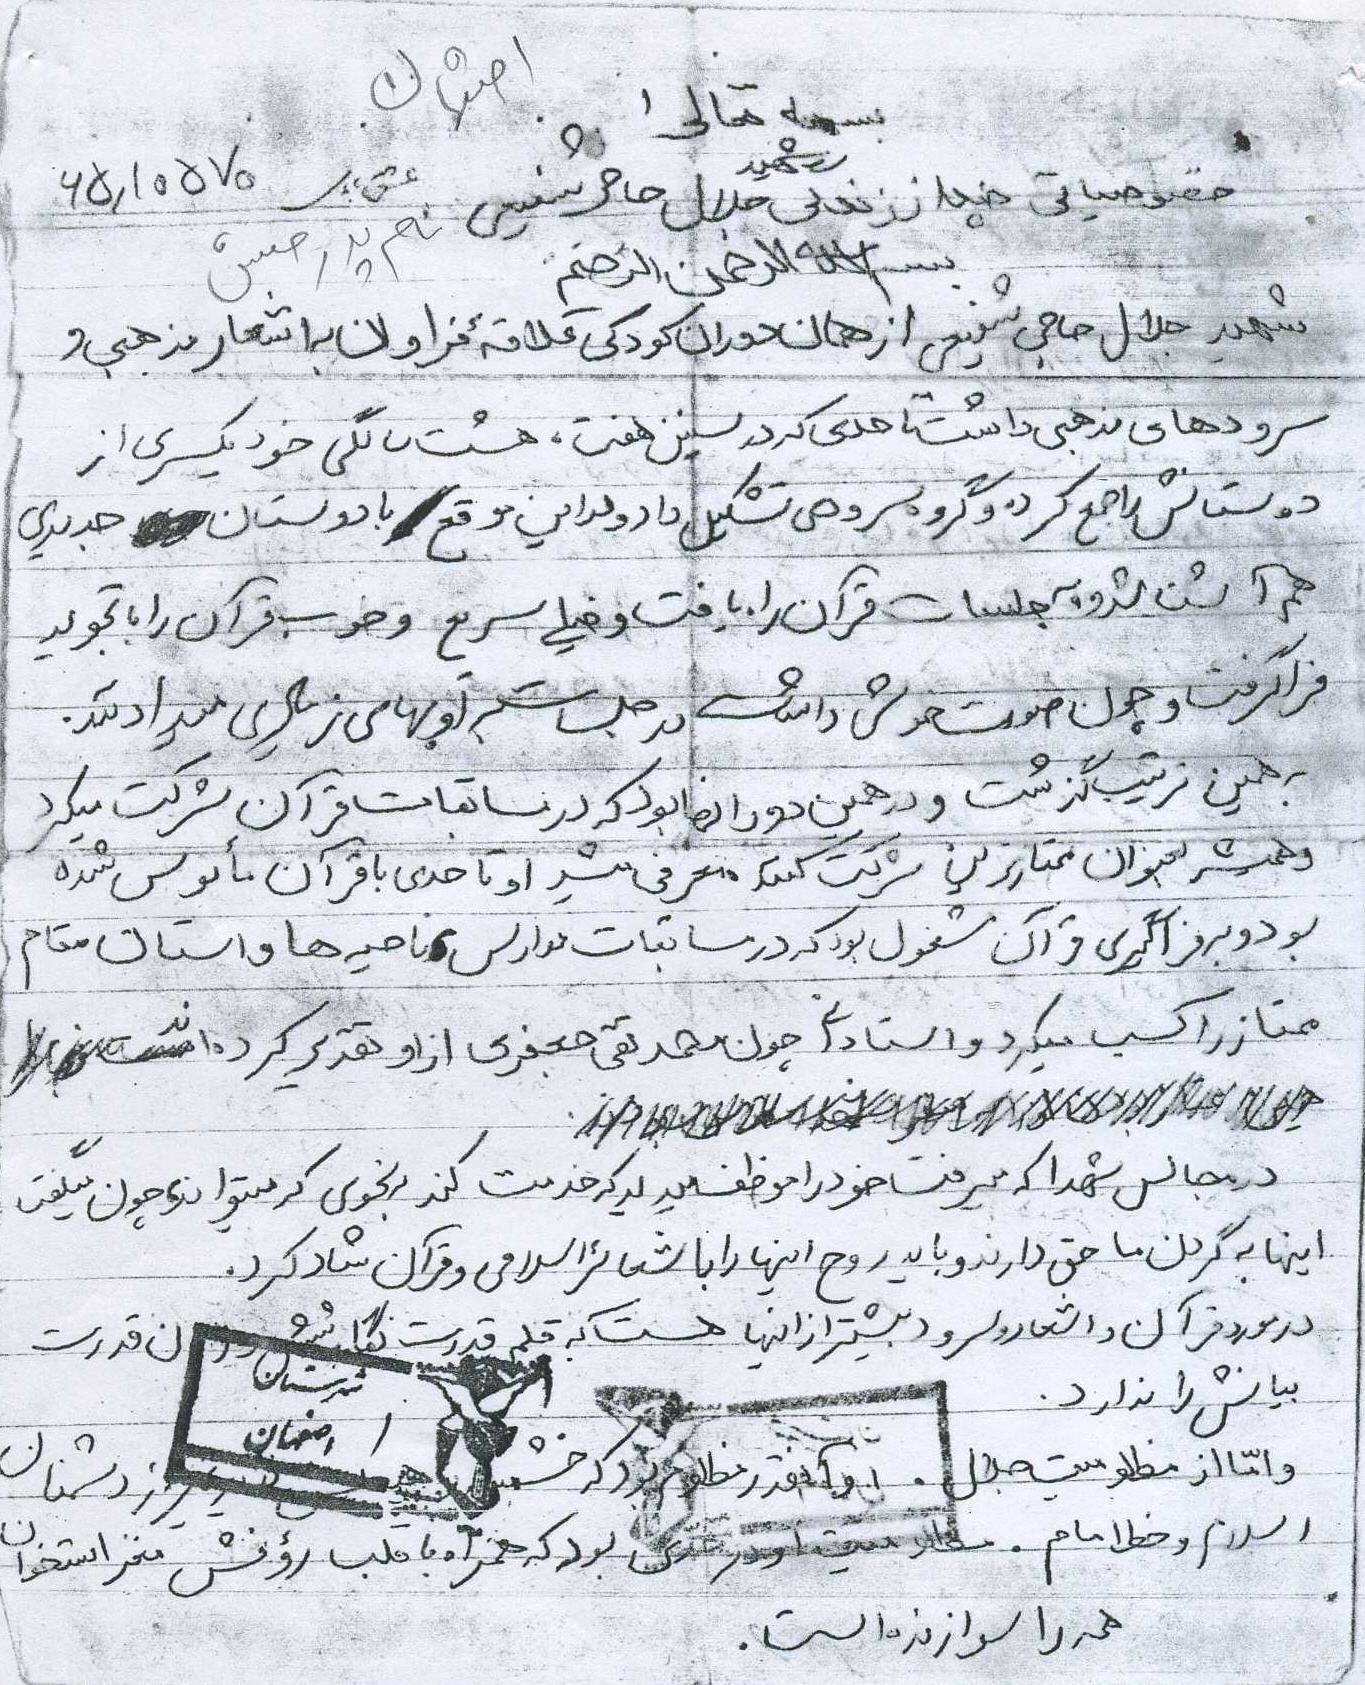 اصفهان
بسمه تعالی
شهید
خصوصیاتی چند از زندگی جلال حاجی شفیعی
۶۵۱۰۵۷۰
نام پدر
بسم الله الرحمن الرحیم
شهید جلال حاجی شفیعی از همان دوران کودکی علاقهٔ فراوان به اشعار مذهبی و
سرودهای مذهبی داشت تا حدی که در سنین هفت، هشت سالگی خود یکسری از
دوستانش را جمع کرده و گروه سرودی تشکیل داد و در این موقع با دوستان جدیدی
هم آشنا شد و به جلسات قرآن راه یافت و خیلی سریع و خوب قرآن را با تجوید
فرا گرفت و چون صوت خوش داشت در جلسات به او بهای زیادی میدادند.
به همین ترتیب گذشت و در همین دورانها بود که در مسابقات قرآن شرکت میکرد
و همیشه بعنوان ممتازترین شرکت کننده معرفی میشد او تا حدی با قرآن مأنوس شده
بود و به فراگیری قرآن مشغول بود که در مسابقات مدارس، ناحیه ها و استان مقام
ممتاز را کسب میکرد و استادی چون محمد تقی جعفری از او تقدیر کرده اند
در مجالس شهدا که میرفت خود را موظف میدید که خدمت کند بنحوی که میتواند چون میگفت
اینها به گردن ما حق دارند و باید روح اینها را با شعائر اسلامی و قرآن شاد کرد.
در مورد قرآن و اشعار و سرود بیشتر از اینها هست که قلم قدرت نگارشش و قدرت
بیانش را ندارد.
شهرستان
اصفهان
و امّا از مظلومیت جلال. او آنقدر مظلوم بود که دشمنان
اسلام و خط امام. مظلومیت او در حدّی بود که همراه با قلب رؤفش مغز استخوان
همه را سوازنده است.